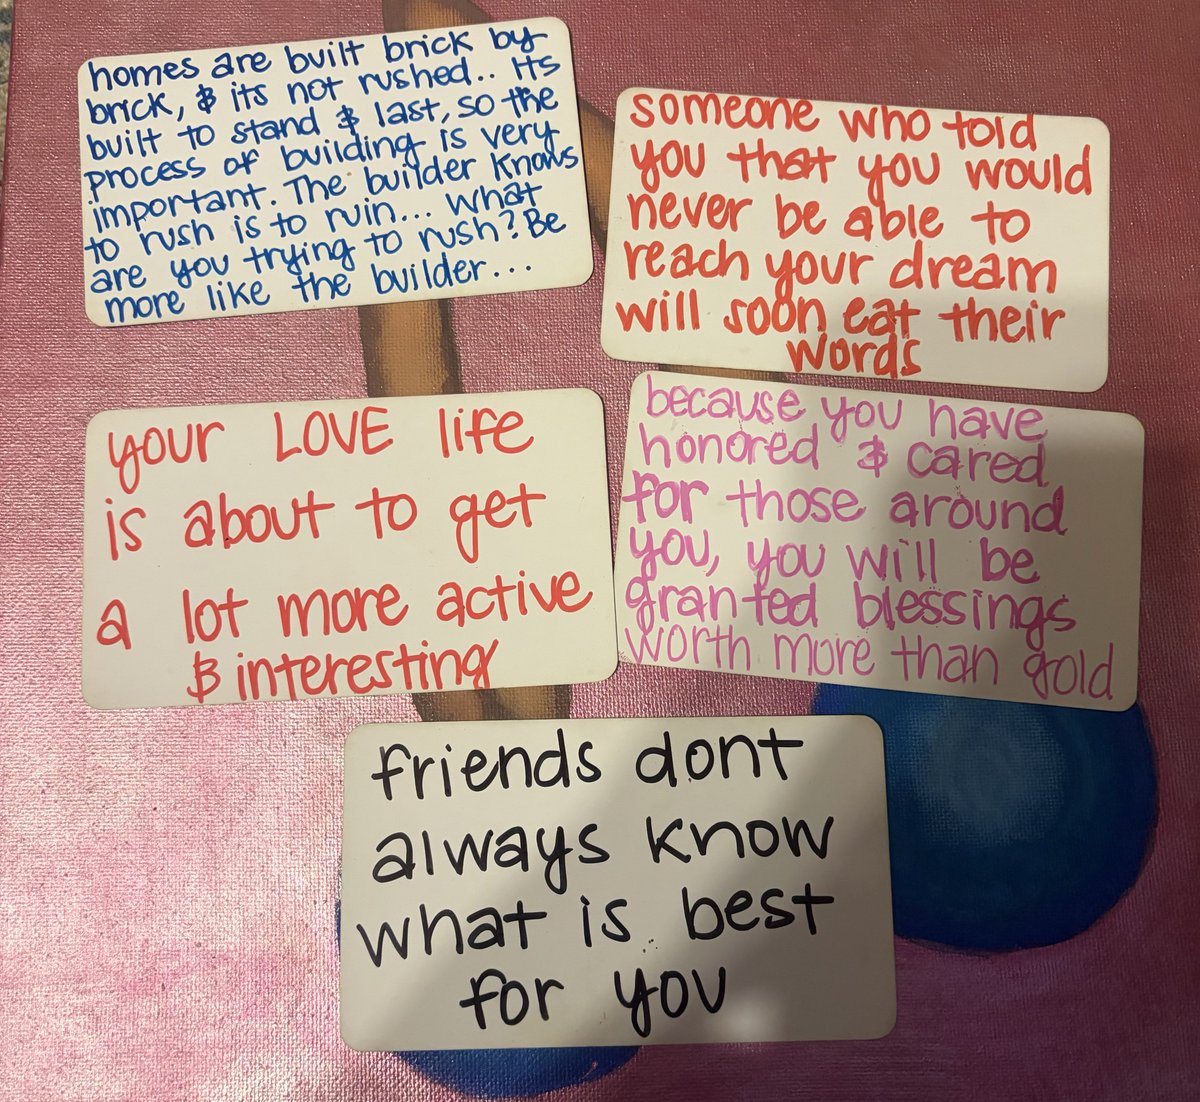 homes are built brick by
brick, & its not rushed.. Its
built to stand & last, so the
process of building is very
important. The builder knows
to rush is to ruin... what
are you trying to rush? Be
more like the builder...
someone who told
you that you would
never be able to
reach your dream
will soon eat their
words
your LOVE life
is about to get
a lot more active
& interesting
because you have
honored & cared
for those around
you, you will be
granted blessings
worth more than gold
friends dont
always know
what is best
for you